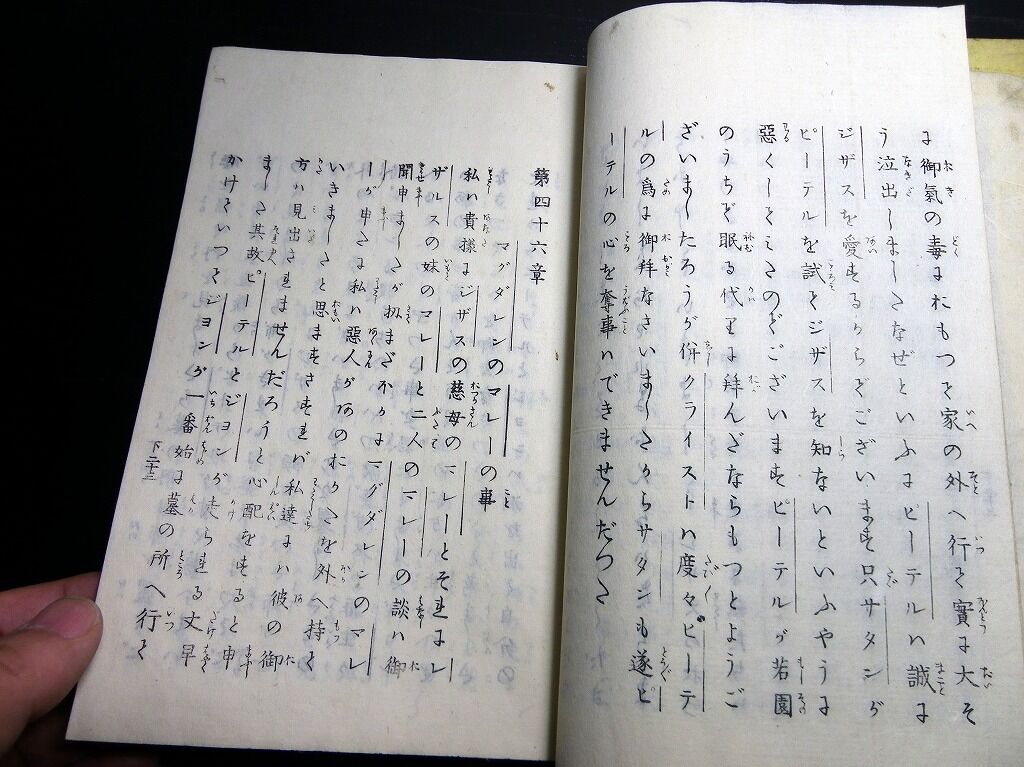 に御氣の毒におもつて家の外へ行て實に大そ
う泣出しましたなぜといふにピーテルハ誠に
ジザスを愛するからでございます只サタンが
ピーテルを試とジザスを知ないといふやうに
惡くしてえたのでございますピーテルが若園
のうちで眠る代りに拜んだならもつとようご
ざいましたろうが併クライストハ度々ピーテ
ルの爲に御拜なさいましたからサタンも遂ピ
ーテルの心を奪事ハできませんだつた
第四十六章
マグダレンのマレーの事
私ハ貴樣にジザスの慈母のマレーとそれにレ
ザルスの妹のマレーと二人のマレーの談ハ御
聞申ましたが扨まだ外にマグダレンのマレ
ーが申すに私ハ惡人がアのおかたを外へ持て
いきましたと思ますさすれバ私達にハ彼の御
方ハ見出されませんだろうと心配をすると申
ました其故ピーテルとジョンが走られる丈早
かけていつてジョンが一番始に墓の所へ行て
下二十三